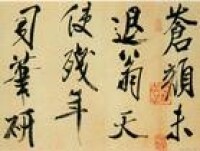 蒼顔未
退翁天
使残年
司筆研